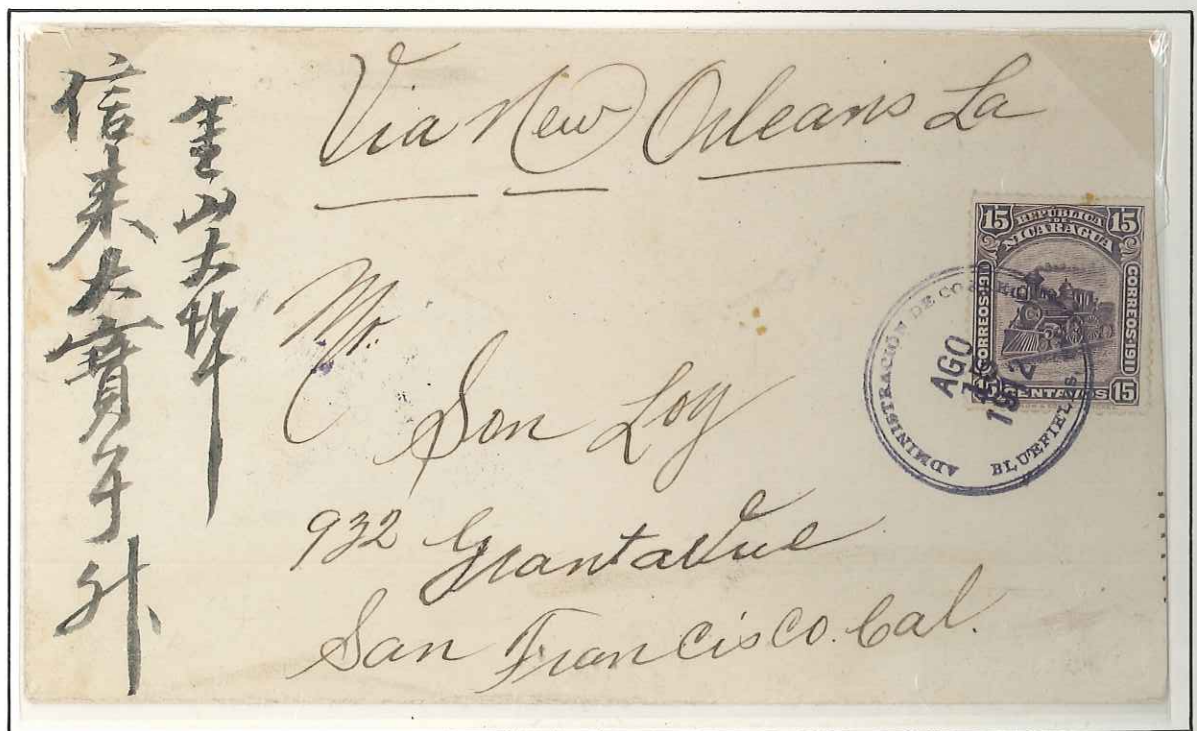 金山大埠
信来大寶号升
Via New Orleans La
Mr.
Son Loy
932 Grant aVue
San Francisco. Cal.
15 REPÚBLICA 15
DE
NICARAGUA
CORREOS-1911
CORREOS-1911
CENTAVOS 15
ADMINISTRACIÓN DE
AGO
1912
BLUEFIELDS.